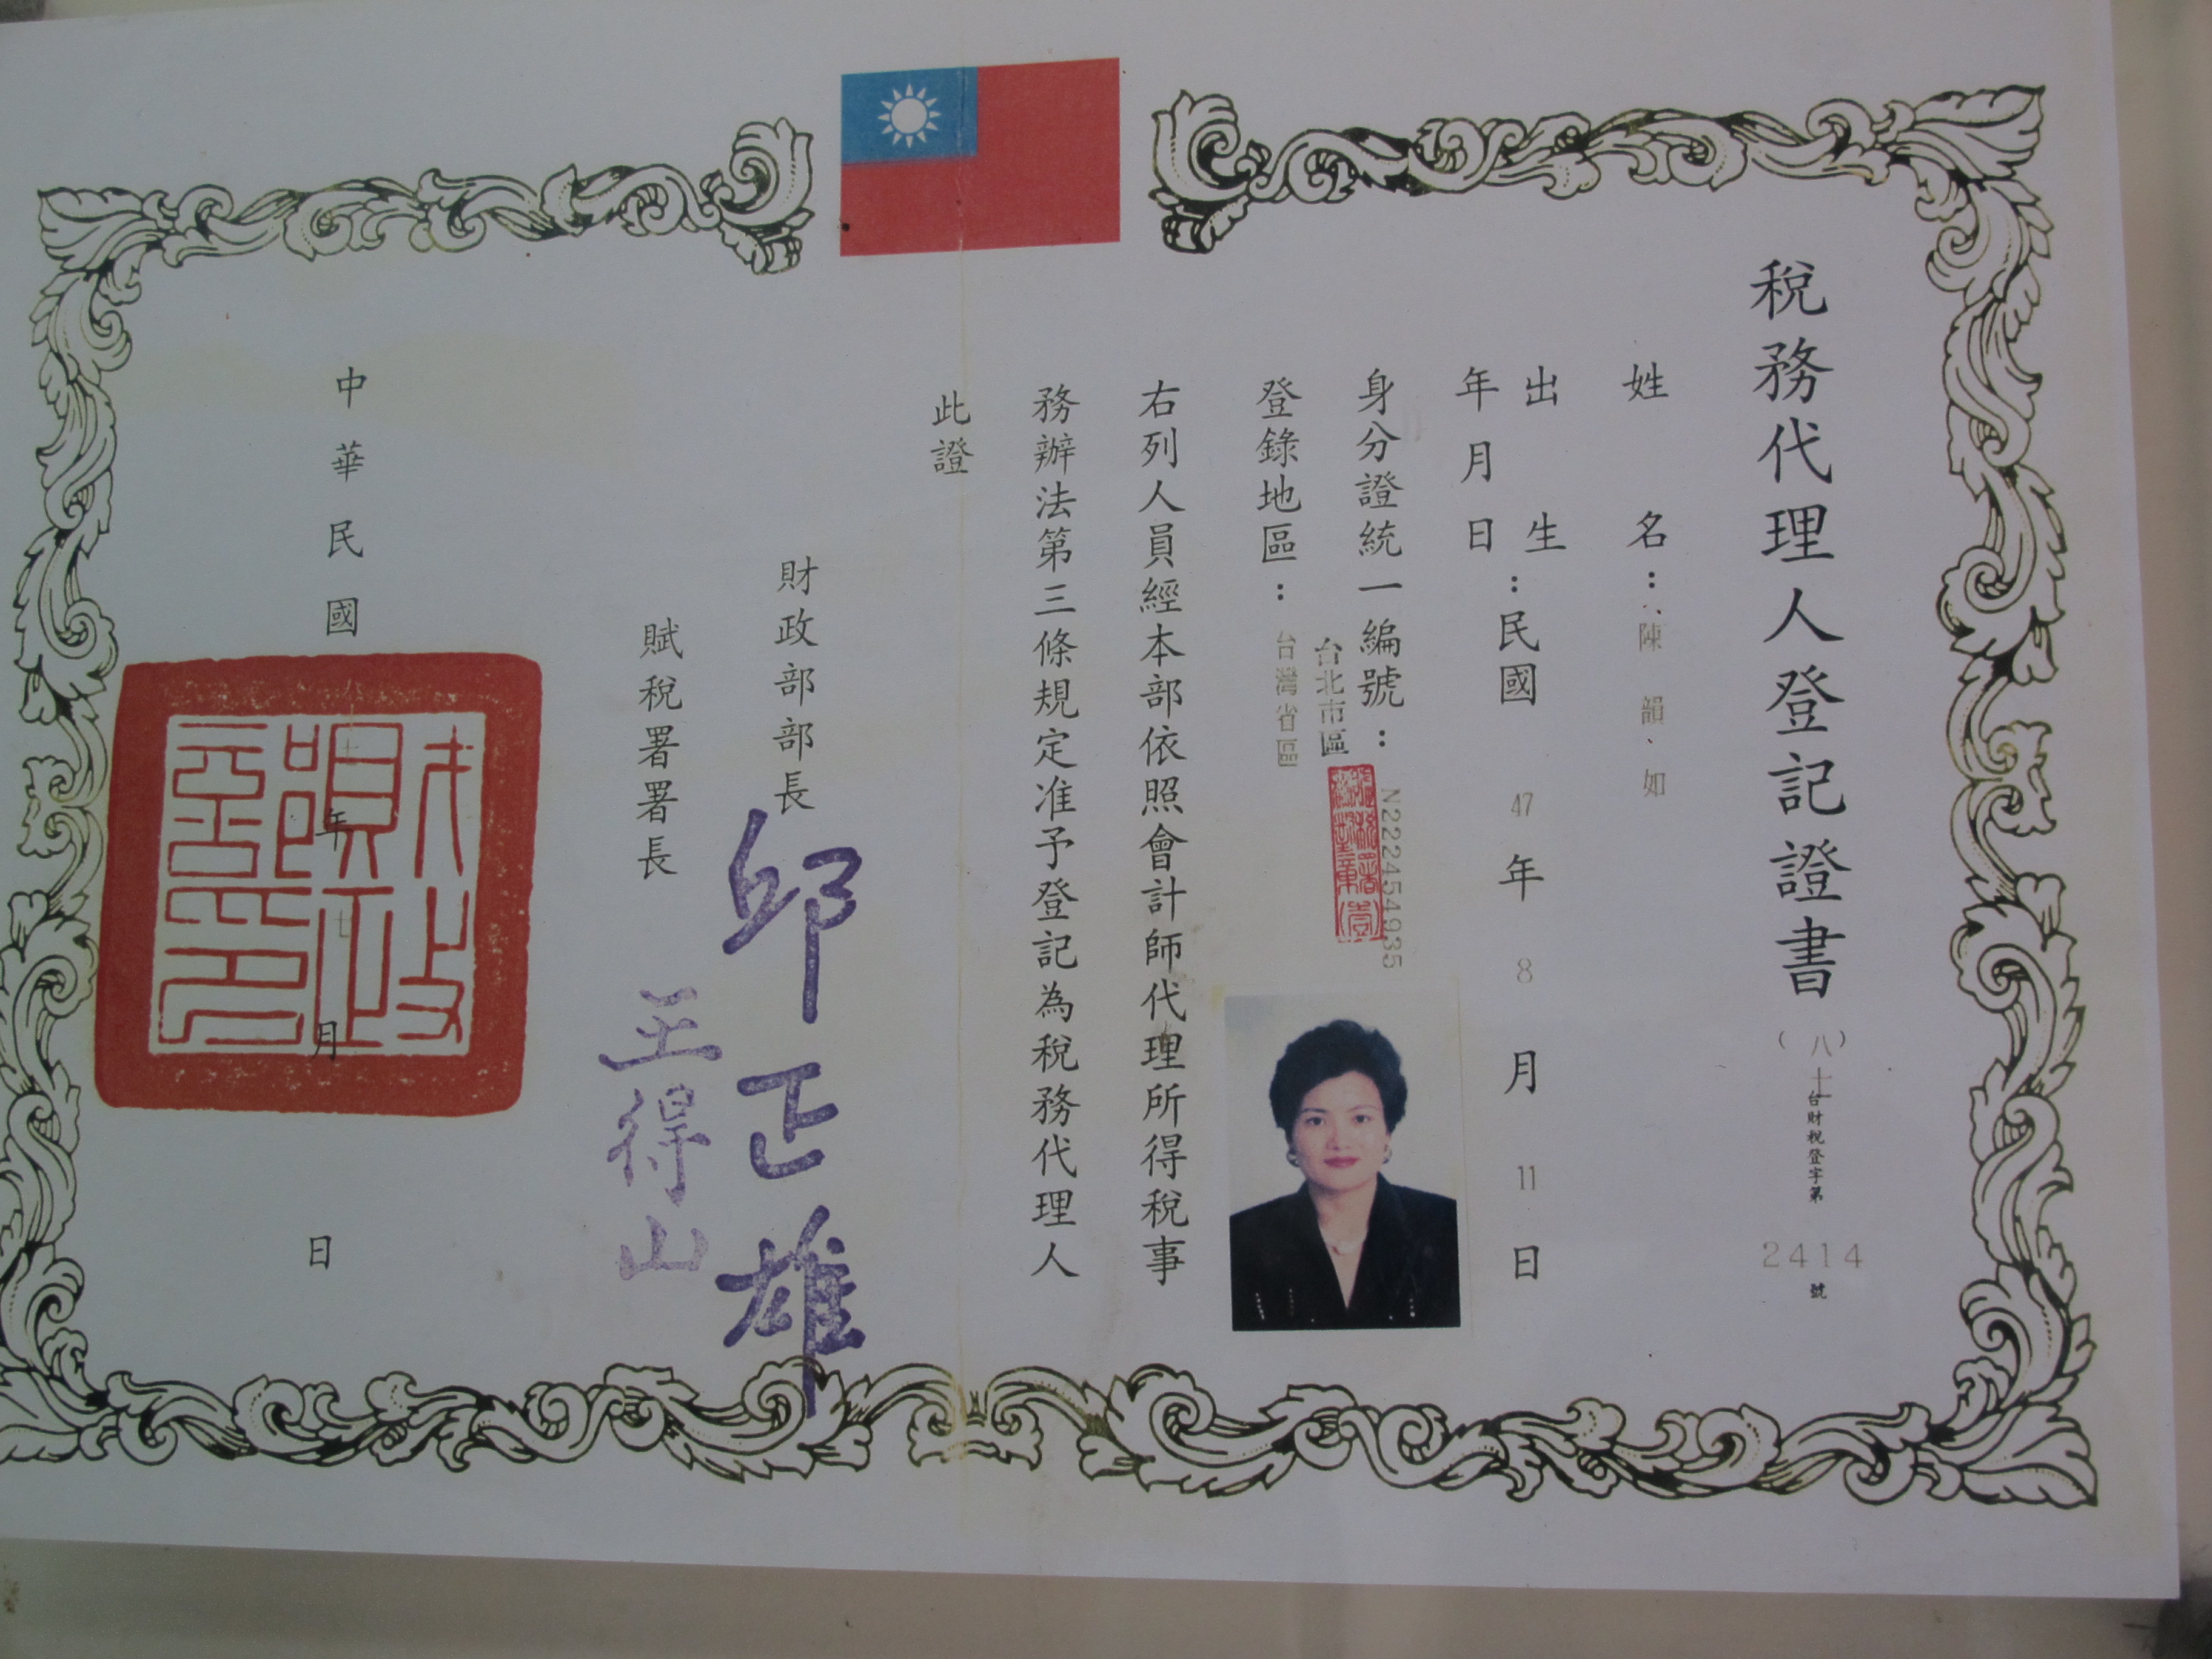 稅務代理人登記證書
（八十）台財稅登字第2414號
姓名：陳韻如
出生年月日：民國47年8月11日
身分證統一編號：N222454935
台北市區
登錄地區：台灣省區
右列人員經本部依照會計師代理所得稅事
務辦法第三條規定准予登記為稅務代理人
此證
財政部部長 邱正雄
賦稅署署長 王得山
中華民國年月日